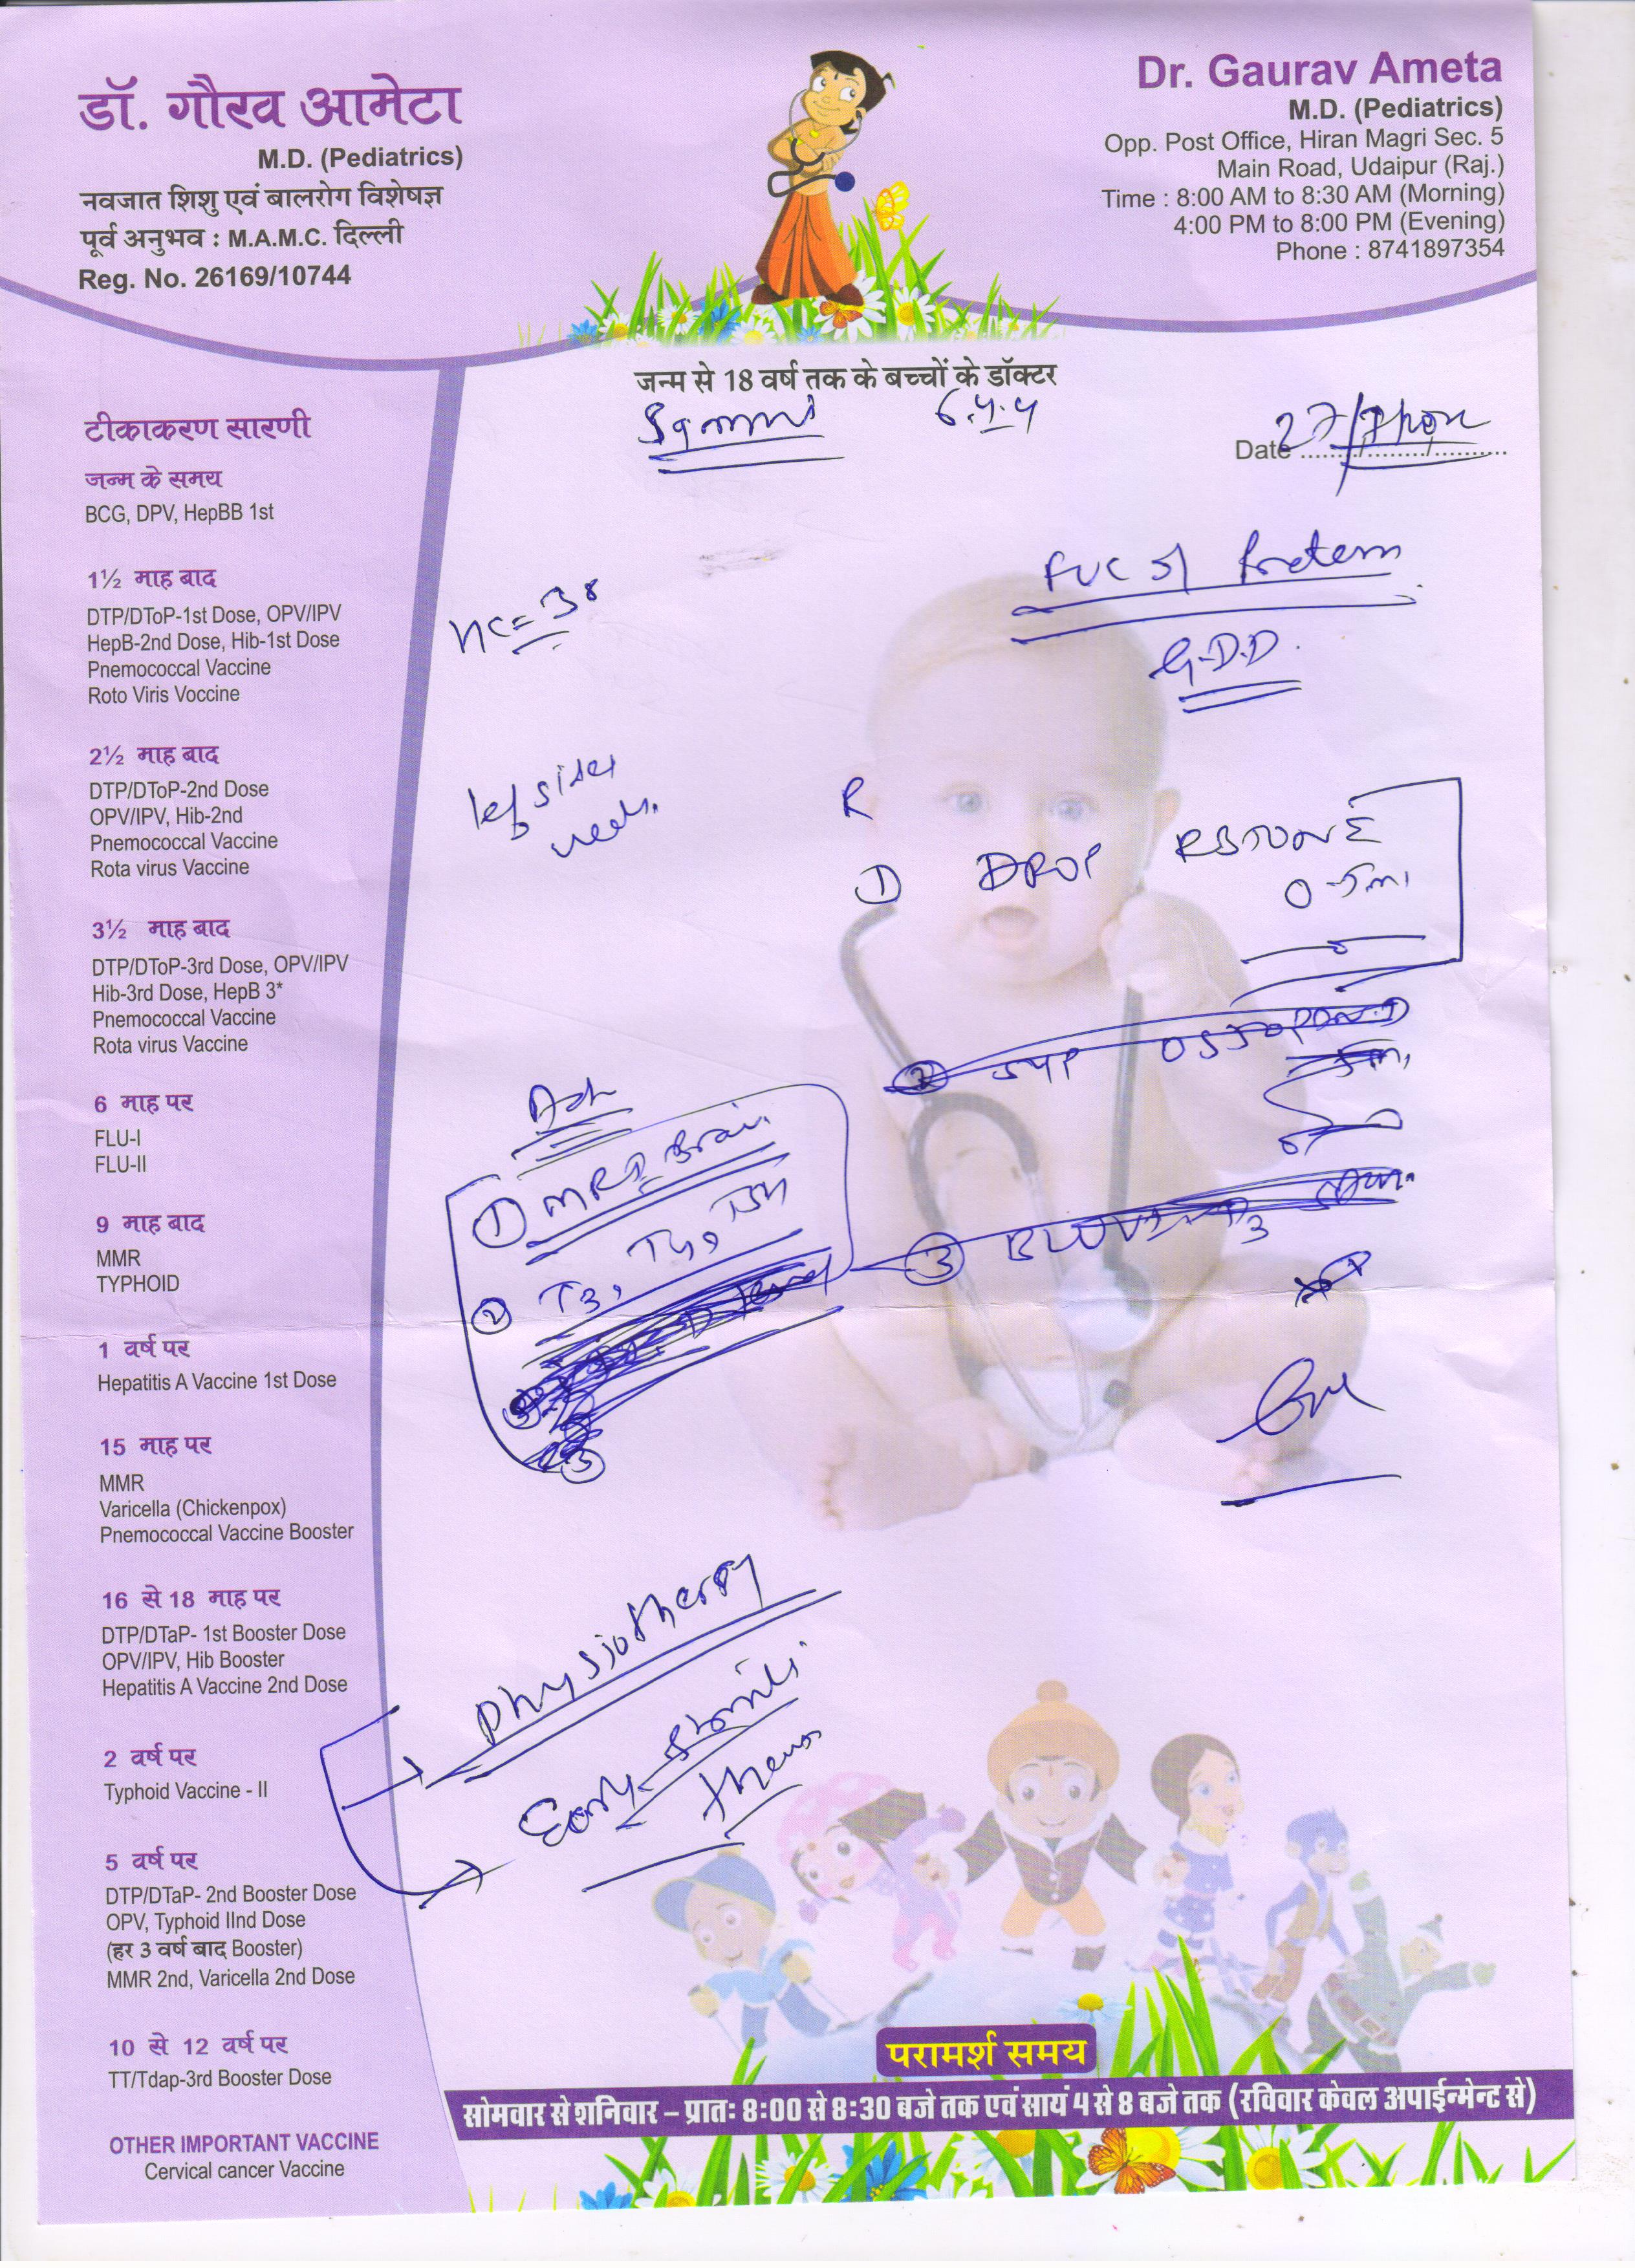 डॉ. गौरव आमेटा
M.D. (Pediatrics)
नवजात शिशु एवं बालरोग विशेषज्ञ
पूर्व अनुभव : M.A.M.C. दिल्ली
Reg. No. 26169/10744
Dr. Gaurav Ameta
M.D. (Pediatrics)
Opp. Post Office, Hiran Magri Sec. 5
Main Road, Udaipur (Raj.)
Time : 8:00 AM to 8:30 AM (Morning)
4:00 PM to 8:00 PM (Evening)
Phone : 8741897354
जन्म से 18 वर्ष तक के बच्चों के डॉक्टर
Date
टीकाकरण सारणी
जन्म के समय
BCG, DPV, HepBB 1st
1½ माह बाद
DTP/DToP-1st Dose, OPV/IPV
HepB-2nd Dose, Hib-1st Dose
Pnemococcal Vaccine
Roto Viris Voccine
2½ माह बाद
DTP/DToP-2nd Dose
OPV/IPV, Hib-2nd
Pnemococcal Vaccine
Rota virus Vaccine
3½ माह बाद
DTP/DToP-3rd Dose, OPV/IPV
Hib-3rd Dose, HepB 3*
Pnemococcal Vaccine
Rota virus Vaccine
6 माह पर
FLU-I
FLU-II
9 माह बाद
MMR
TYPHOID
1 वर्ष पर
Hepatitis A Vaccine 1st Dose
15 माह पर
MMR
Varicella (Chickenpox)
Pnemococcal Vaccine Booster
16 से 18 माह पर
DTP/DTaP- 1st Booster Dose
OPV/IPV, Hib Booster
Hepatitis A Vaccine 2nd Dose
2 वर्ष पर
Typhoid Vaccine - II
5 वर्ष पर
DTP/DTaP- 2nd Booster Dose
OPV, Typhoid IInd Dose
(हर 3 वर्ष बाद Booster)
MMR 2nd, Varicella 2nd Dose
10 से 12 वर्ष पर
TT/Tdap-3rd Booster Dose
OTHER IMPORTANT VACCINE
Cervical cancer Vaccine
Preterm
G.D.D.
R
① DROP
② SYP
③
① MRI Brain
② T3, T4, TSH
Physiotherapy
Early
परामर्श समय
सोमवार से शनिवार – प्रातः 8:00 से 8:30 बजे तक एवं सायं 4 से 8 बजे तक (रविवार केवल अपाईन्मेन्ट से)